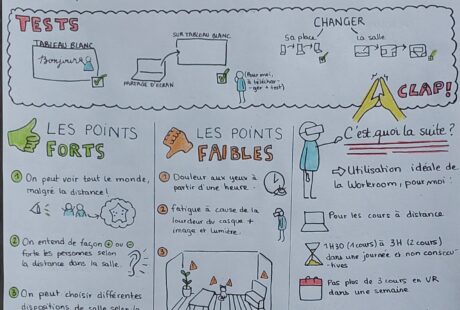 TESTS
TABLEAU BLANC
Bonjour
SUR TABLEAU BLANC
PARTAGE D'ECRAN
(Pour moi,
à téléchar-
ger + test)
CHANGER
sa place
la salle
CLAP!
LES POINTS
FORTS
1 On peut voir tout le monde,
malgré la distance!
2 On entend de façon + ou -
forte les personnes selon
la distance dans la salle.
3 On peut choisir différentes
dispositions de salle selon la
LES POINTS
FAIBLES
1 Douleur aux yeux à
partir d'une heure.
2 fatigue à cause de la
lourdeur du casque +
image et lumière.
3
C'est quoi la suite?
→ Utilisation idéale de
la Workroom, pour moi:
Pour les cours à distance
1H30 (1 cours) à 3H (2 cours)
dans une journée et non consecu-
tives
Pas plus de 3 cours en VR
dans une semaine